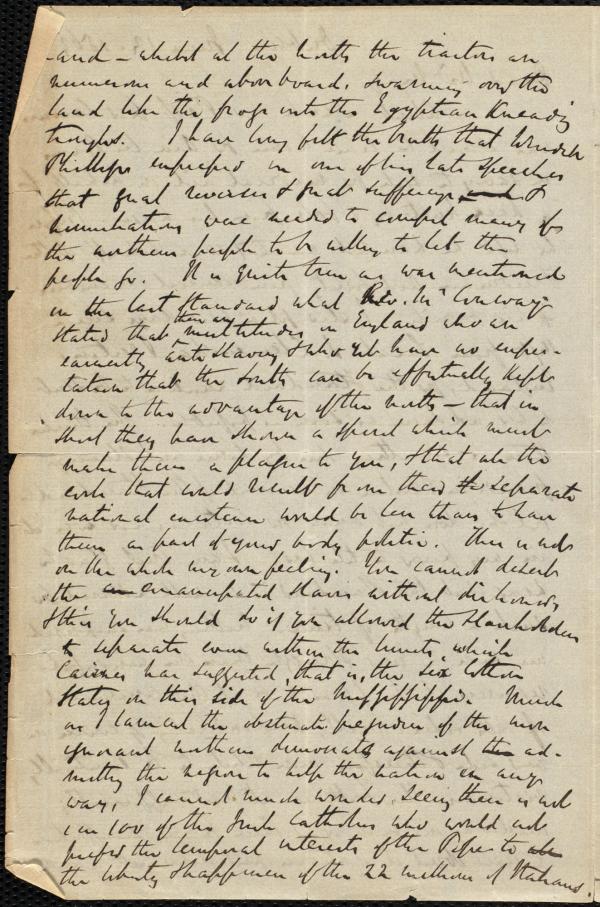 -and - whilst at the North the traitors are
numerous and above board, swarming over the
land like the frogs into the Egyptian Kneading
troughs. I have long felt the truth that Wendell
Phillips expressed in one of his late speeches
that great reverses & great sufferings &
humiliations were needed to compel many of
the northern people to be willing to let the
people go. It is quite true as was mentioned
in the last Standard what Rev. Mr Conway
stated that there are multitudes in England who are
earnestly anti Slavery & who yet have no expec-
tation that the South can be effectually kept
down to the advantage of the north - that in
short they have shown a spirit which must
make them a plague to you, & that all the
evils that would result from their separate
national existence would be less than to have
them as part of your body politic. This is not
on the whole my own feeling. You cannot desert
the emancipated slaves without dishonor,
& this you should do if you allowed the Slaveholders
to separate even within the limits, which
Cairnes has suggested, that is, the six Cotton
States on this side of the Mississippi. Much
as I lament the obstinate prejudice of the more
ignorant northern democrats against the ad-
mitting the negro to help the nation in any
way, I cannot much wonder seeing there is not
1 in 100 of the Irish Catholics who would not
prefer the temporal interests of the Pope to
the liberty & happiness of the 22 millions of Italians.